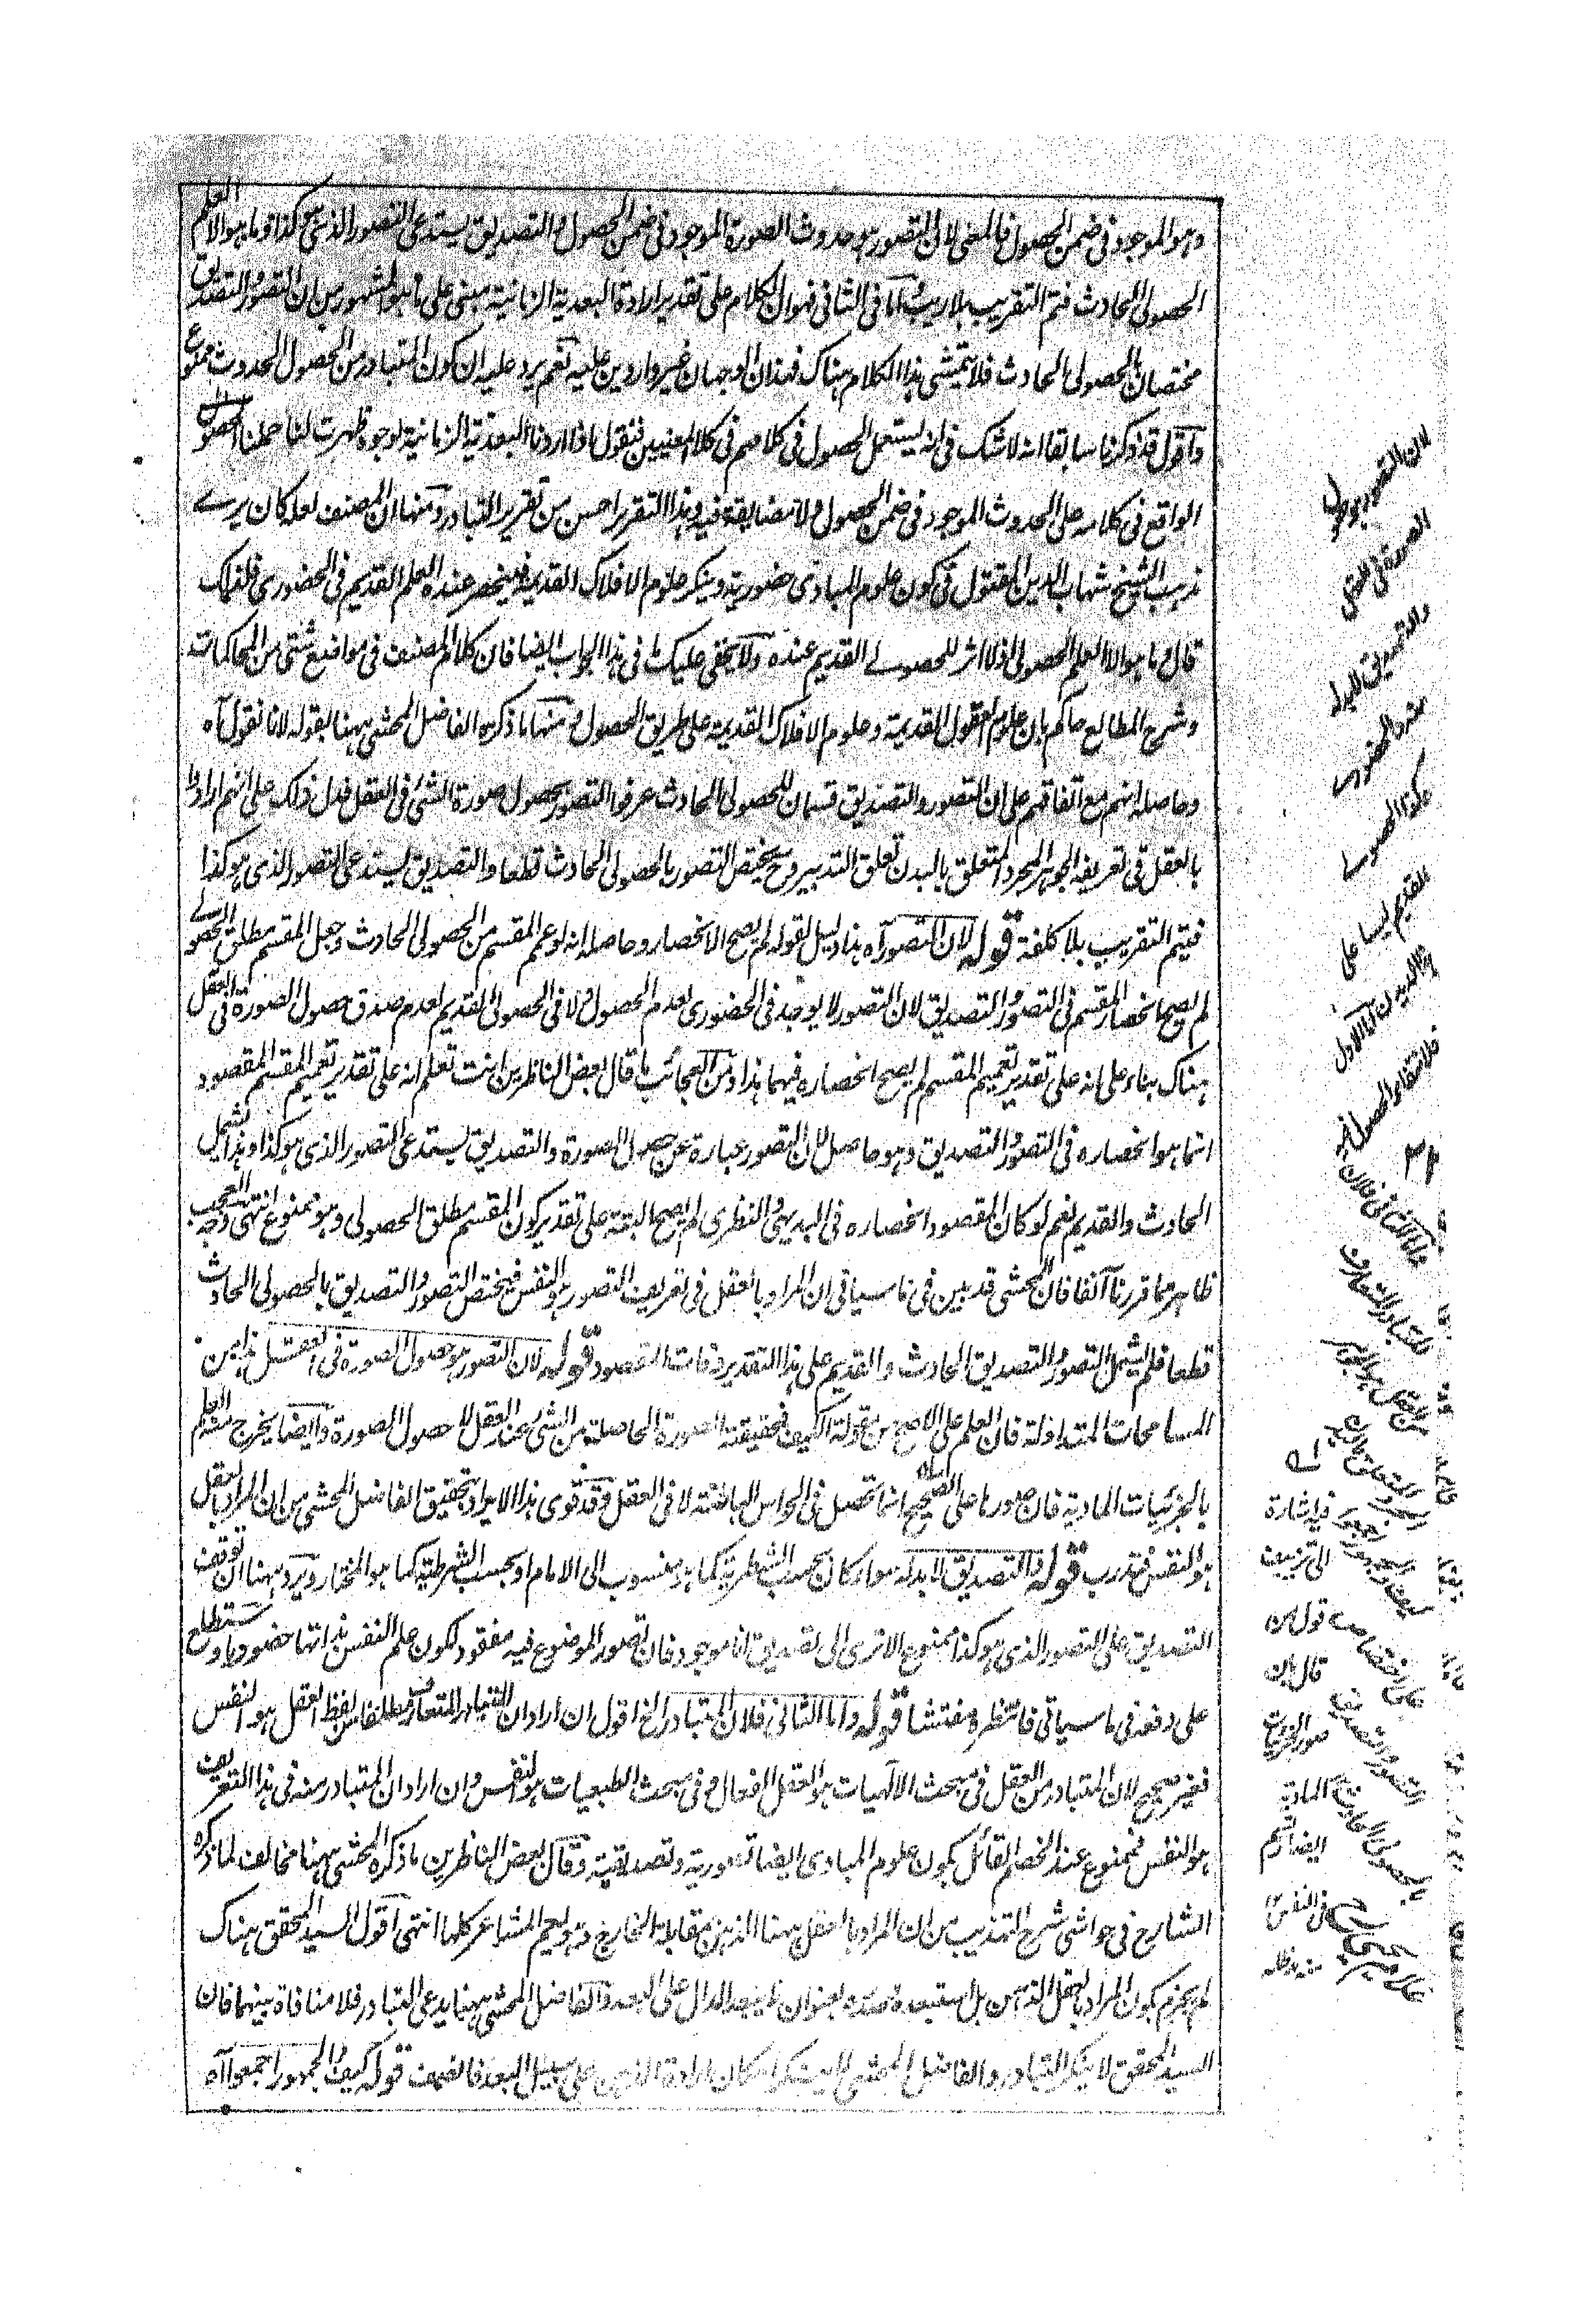 وهو الموجود في ضمن الحصول فالمعنى لان التصور هو حدوث الصورة الموجود في ضمن الحصول والتصديق يستدعي التصور الذي هو كذا وما هو الا العلم
الحصولي الحادث فتم التقريب بلا ريب واما في الثاني فهو ان الكلام على تقدير ارادة البعدية الزمانية مبني على ما هو المشهور من ان التصور والتصديق
مختصان بالحصولي الحادث فلا يتمشى هذا الكلام هناك فهذان الوجهان غير واردين عليه نعم يرد عليه ان كون المتبادر من الحصول الحدوث ممنوع
واقول قد ذكرنا سابقا انه لا شك في انه يستعمل الحصول في كلامهم في كلا المعنيين فنقول اذا اردنا البعدية الزمانية لوجوه ظهرت لنا حملنا الحصول
الواقع في كلامه على الحدوث الموجود في ضمن الحصول ولا مضايقة فيه وهذا التقرير احسن من تقرير التبادر ومنها ان المصنف لعله كان يرى
مذهب الشيخ شهاب الدين المقتول في كون علوم المبادي حضورية وينكر علوم الافلاك القديمة فينحصر عنده العلم القديم في الحضوري فلذلك
قال وما هو الا العلم الحصولي اذ لا اثر للحصولي القديم عنده ولا يخفى عليك ما في هذا الجواب ايضا فان كلام المصنف في مواضع شتى من المحاكمات
وشرح المطالع حاكم بان علوم العقول القديمة وعلوم الافلاك القديمة على طريق الحصول ومنها ما ذكره الفاضل المحشي ههنا بقوله لانا نقول آه
وحاصله انهم مع اتفاقهم على ان التصور والتصديق قسمان للحصولي الحادث عرفوا التصور بحصول صورة الشئ في العقل فدل ذلك على انهم ارادوا
بالعقل في تعريفه الجوهر المجرد المتعلق بالبدن تعلق التدبير وح يختص التصور بالحصولي الحادث قطعا والتصديق يستدعي التصور الذي هو كذا
فيتم التقريب بلا كلفة قوله لان التصور آه هذا دليل لقوله لم يصح الانحصار وحاصله انه لو عمم المقسم من الحصولي الحادث وجعل المقسم مطلق الحصولي
لم يصح انحصار المقسم في التصور والتصديق لان التصور لا يوجد في الحضوري لعدم الحصول ولا في الحصولي القديم لعدم صدق حصول الصورة في العقل
هناك بناء على انه على تقدير تعميم المقسم لم يصح انحصاره فيهما هذا ومن العجائب ما قال بعض الناظرين انت تعلم انه على تقدير تعميم المقسم المقصود
انما هو انحصاره في التصور والتصديق وهو حاصل لان التصور عبارة عن حصول الصورة والتصديق يستدعي التصور الذي هو كذا وهذا يشمل
الحادث والقديم نعم لو كان المقصود انحصاره في البديهي والنظري لم يصح البتة على تقدير كون المقسم مطلق الحصولي وهو ممنوع انتهى وجه العجب
ظاهر مما قررنا آنفا فان المحشي قد بين في ما سياتي ان المراد بالعقل في تعريف التصور هو النفس فيختص التصور والتصديق بالحصولي الحادث
قطعا فلم يشمل التصور والتصديق الحادث والقديم على هذا التقدير وفات المقصود قوله لان التصور هو حصول الصورة في العقل هذا من
المسامحات المتداولة فان العلم على الاصح من مقولة الكيف فحقيقته الصورة الحاصلة من الشئ عند العقل لا حصول الصورة وايضا يخرج منه العلم
بالجزئيات المادية فان صورها على الصحيح انما تحصل في الحواس الباطنة لا في العقل وقد قوى هذا الايراد بتحقيق الفاضل المحشي من ان المراد بالعقل
هو النفس فتدرب قوله والتصديق لا بد له سواء كان بحسب الشطرية كما هو منسوب الى الامام او بحسب الشرطية كما هو المختار ويرد ههنا ان توقف
التصديق على التصور الذي هو كذا ممنوع الا ترى الى تصديق انا موجود فان تصور الموضوع فيه مفقود لكون علم النفس بذاتها حضوريا وستطلع
على دفعه في ما سياتي فانتظره مفتشا قوله واما الثاني فلان المتبادر الخ اقول ان اراد ان المتبادر المتعارف مطلقا من لفظ العقل هو النفس
فغير صحيح لان المتبادر من العقل في مبحث الالهيات هو العقل الفعال وفي مبحث الطبعيات هو النفس وان اراد ان المتبادر منه في هذا التعريف
هو النفس فممنوع عند الخصم القائل بكون علوم المبادي ايضا تصورية وتصديقية وقال بعض الناظرين ما ذكره المحشي ههنا مخالف لما ذكره
الشارح في حواشي شرح التهذيب من ان المراد بالعقل ههنا الذهن مقابلة الخارج فهو يعم المشاعر كلها انتهى اقول السيد المحقق هناك
لم يجزم بكون المراد بالعقل الذهن بل استبعده بعنوان البعيد الدال على البعد والفاضل المحشي ههنا يدعي التبادر فلا منافاة بينهما فان
السيد المحقق لا ينكر التبادر والفاضل المحشي لا ينكر امكان ارادة الذهن على سبيل البعد فانصف قوله كيف والجمهور اجمعوا آه
لان التصور هو حصول
الصورة في العقل
والتصديق لا بد له
منه والحضوري
وكذا الحصولي
القديم ليسا على
اما الاول
فلانتفاء الحصول فيه
٣٤
واما الثاني فلان
المتبادر المتعارف
من العقل هو الجوهر
المجرد المتعلق بالبدن
كيف والجمهور اجمعوا
على اختصاص
التصور والتصديق
بالحصولي الحادث
غلام يحيى
فيه اشارة
الى تزييف
قول من
قال بان
صور الجزئيات
المادية
ايضا ترتسم
في النفس
منه مد ظله